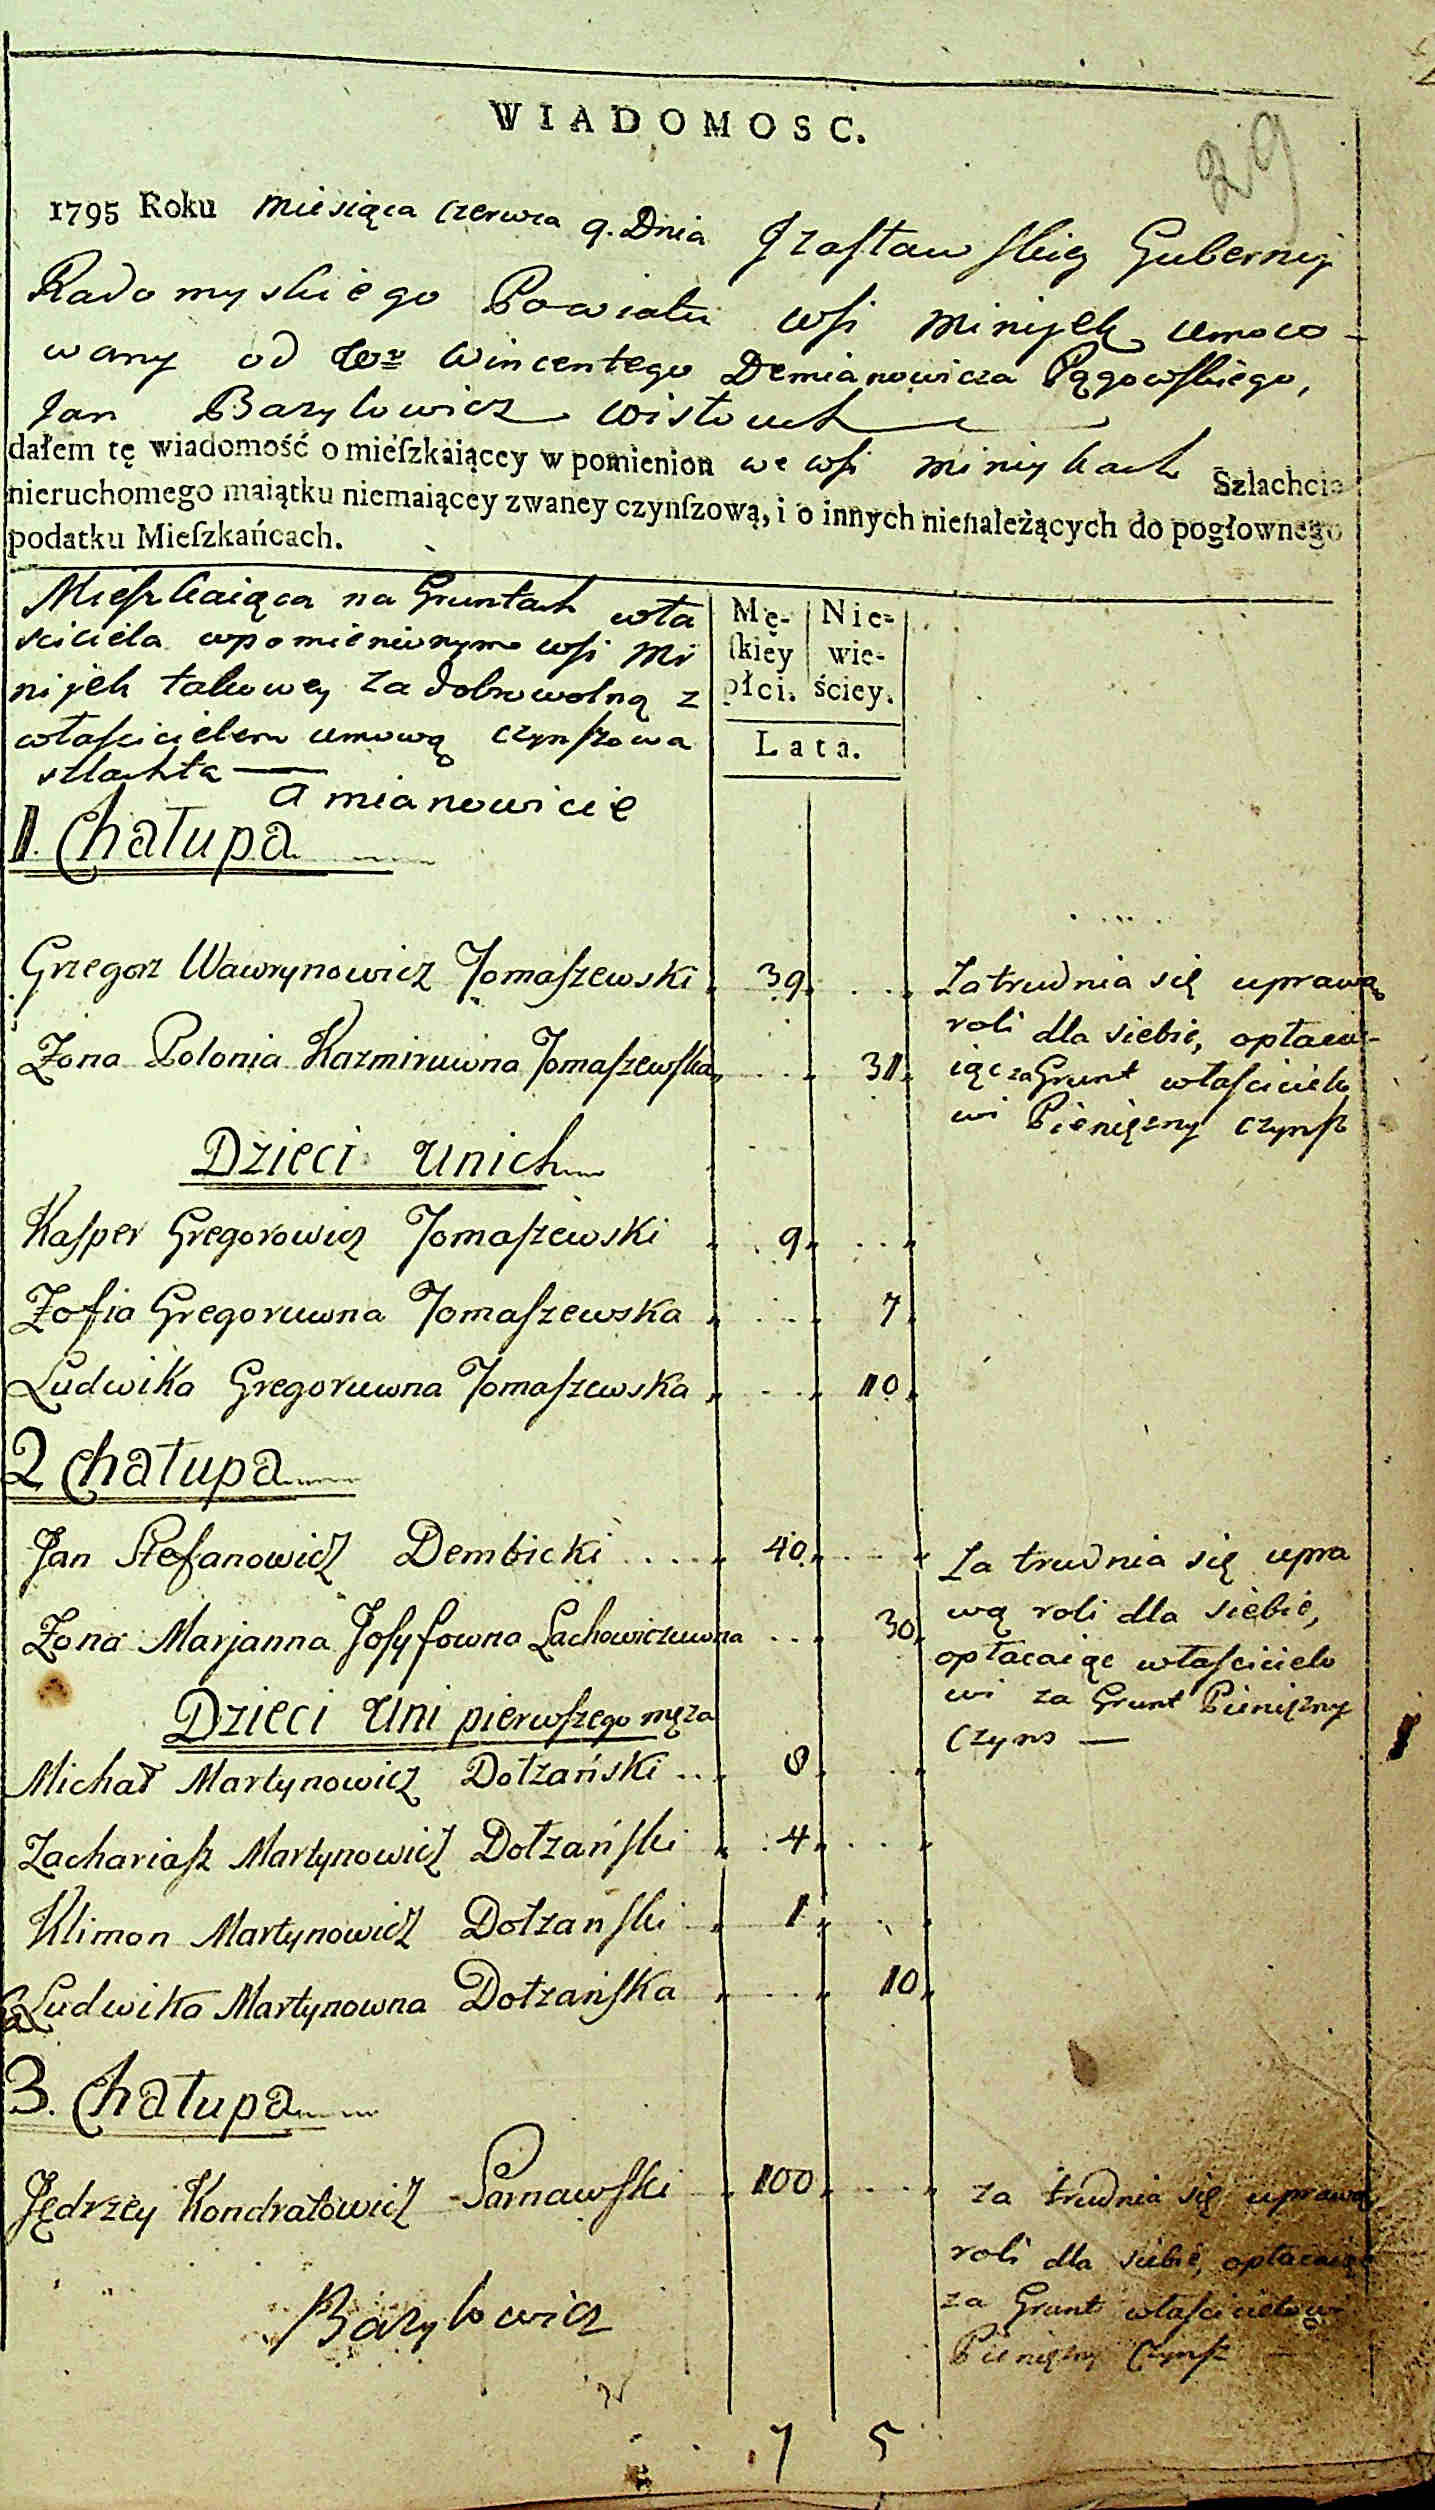 WIADOMOSC.
29
1795 Roku Miesiąca Czerwca 9. Dnia Jzasławskiey Gubernij
Radomyskiego Powiatu wsi Miniyek umoco-
wany od Wo Wincentego Demianowicza Pągowskiego,
Jan Bazylowicz Wisłouch
dałem tę wiadomość o mieſzkaiącey w pomienion we wsi Miniykach Szlachcie
nieruchomego maiątku niemaiącey zwaney czynſzową, i o innych nienależących do pogłownego
podatku Mieſzkańcach.
Mieſzkaiąca na Gruntach wła
sciciela wpomienionym wsi Mi
niyek takowey za dobrowolną z
właſcicielem umową czynſzowa
szlachta —
a mianowicie
Mę- Nie-
ſkiey wie-
płci. ściey.
Lata.
1. Chałupa
Grzegorz Wawrynowicz Tomaſzewski 39
Zona Polonia Kazmiruwna Tomaſzewſka 31
Zatrudnia się uprawą
roli dla siebie, opłaca-
iąc za Grunt właſcicielo
wi Pieniężny czynſz
Dzieci unich
Kaſper Gregorowicz Tomaſzewski 9
Zofia Gregoruwna Tomaſzewska 7
Ludwika Gregoruwna Tomaſzewska 10
2 Chałupa
Jan Stefanowicz Dembicki 40
Zona Marjanna Joſyfowna Lachowiczuwna 30
Za trudnia się upra
wą roli dla siebie,
opłacaiąc właſcicielo
wi za Grunt Pieniężny
Czyns —
Dzieci Uni pierwſzego męza
Michał Martynowicz Dołzański 8
Zachariaſz Martynowicz Dołzańſki 4
Klimon Martynowicz Dołzanſki 1
Ludwika Martynowna Dołzańſka 10
3. Chałupa
Jędrzey Kondratowicz Sarnawſki 100
za trudnia się uprawą
roli dla siebie, opłacaiąc
za Grunt właſcicielowi
Pieniężny Czynſz —
Bazylowicz
7 5